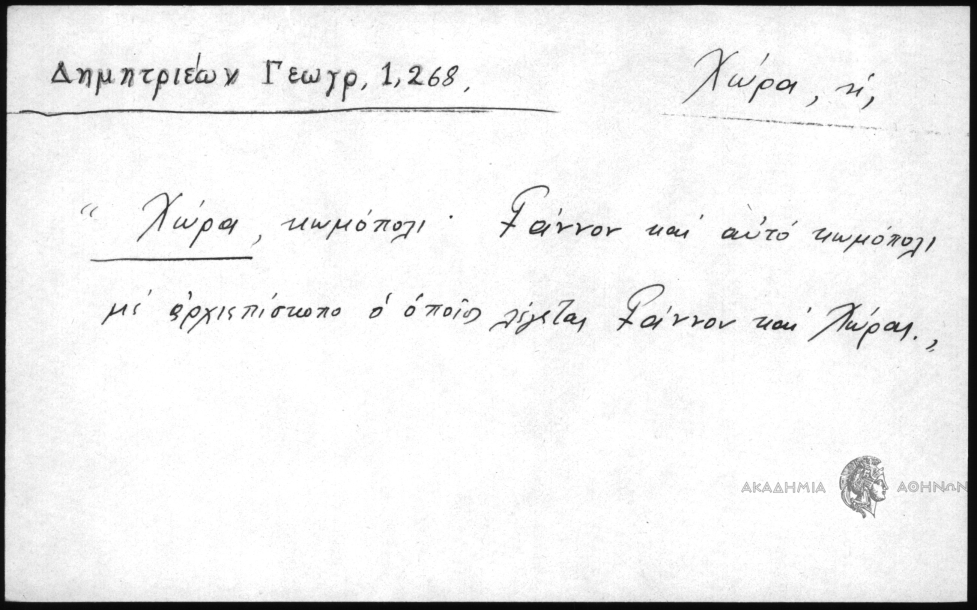 Δημητριέων Γεωγρ, 1, 268.
Χώρα, ἡ,
“ Χώρα, κωμόπολι · Γάννον καὶ αὐτό κωμόπολι
μέ ἀρχιεπίσκοπο ὁ ὁποῖος λέγεται Γάννου καί Χώρας.„
ΑΚΑΔΗΜΙΑ ΑΘΗΝΩΝ